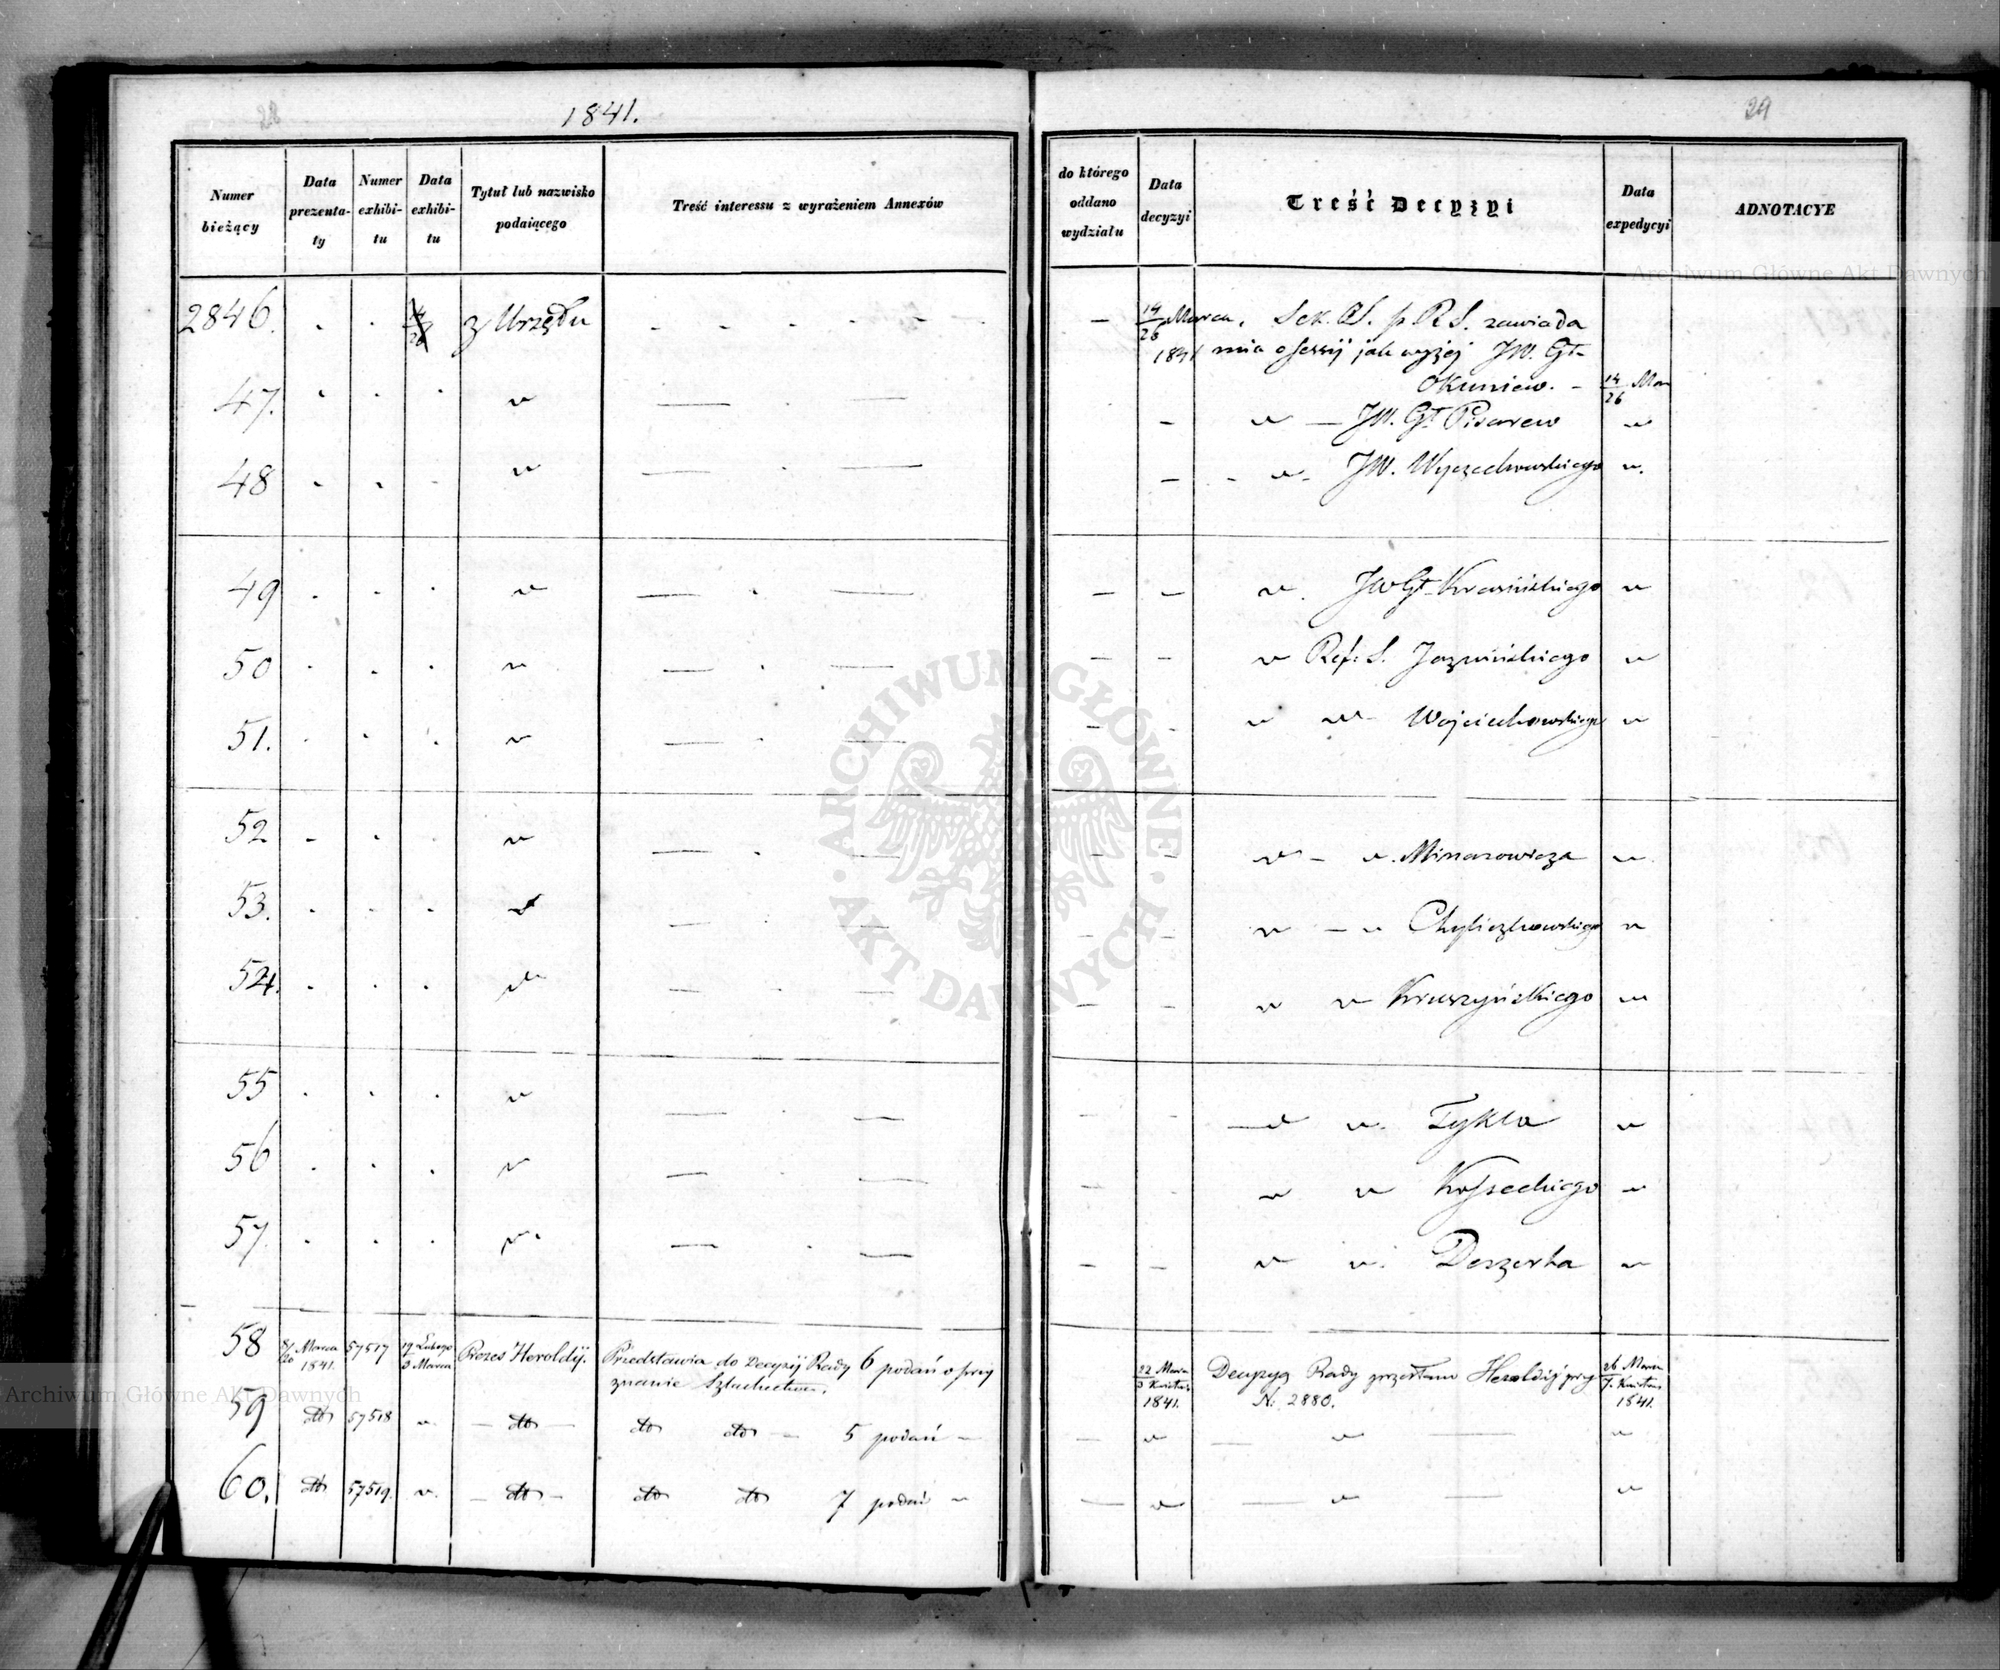 28
1841.
Numer bieżący
Data prezenta-ty
Numer exhibi-tu
Data exhibi-tu
Tytuł lub nazwisko podaiącego
Treść interessu z wyrażeniem Annexów
2846. 14/26 z Urzędu
47. "
48 "
49 "
50 "
51. "
52 "
53. "
54. "
55 "
56 "
57. "
58 8/20 Marca 1841. 57517 19 Lutego/3 Marca Prezes Heroldij. Przedstawia do Decyzij Rady 6 podań o przy
znanie Szlachectwa.
59 dto 57518 " dto dto dto 5 podań
60. dto 57519. " dto dto dto 7 podań
29
do którego oddano wydziału
Data decyzyi
Treść Decyzyi
Data expedycyi
ADNOTACYE
14/26 Marca 1841 Sek. St. p. R. S. zawiada
mia o sessij jak wyżej JW. Gł.
Okuniew. 14/26 Mar
" JW. Gł. Pisarew "
" JW. Wyczechowskiego "
" JW Gł. Krasińskiego "
" Ref. S. Jazwińskiego "
" " Wojciechowskiego "
" " Minasowicza "
" " Chyliczkowskiego "
" " Kruszyńskiego "
" " Tykla "
" " Kosseckiego "
" " Deszerta "
22 Marca/3 Kwietnia 1841. Decyzyą Rady przesłano Heroldij przy 26 Marca/7 Kwietnia 1841.
N. 2880.
" " "
" " "
Archiwum Główne Akt Dawnych
Archiwum Główne Akt Dawnych
ARCHIWUM GŁÓWNE · AKT DAWNYCH ·